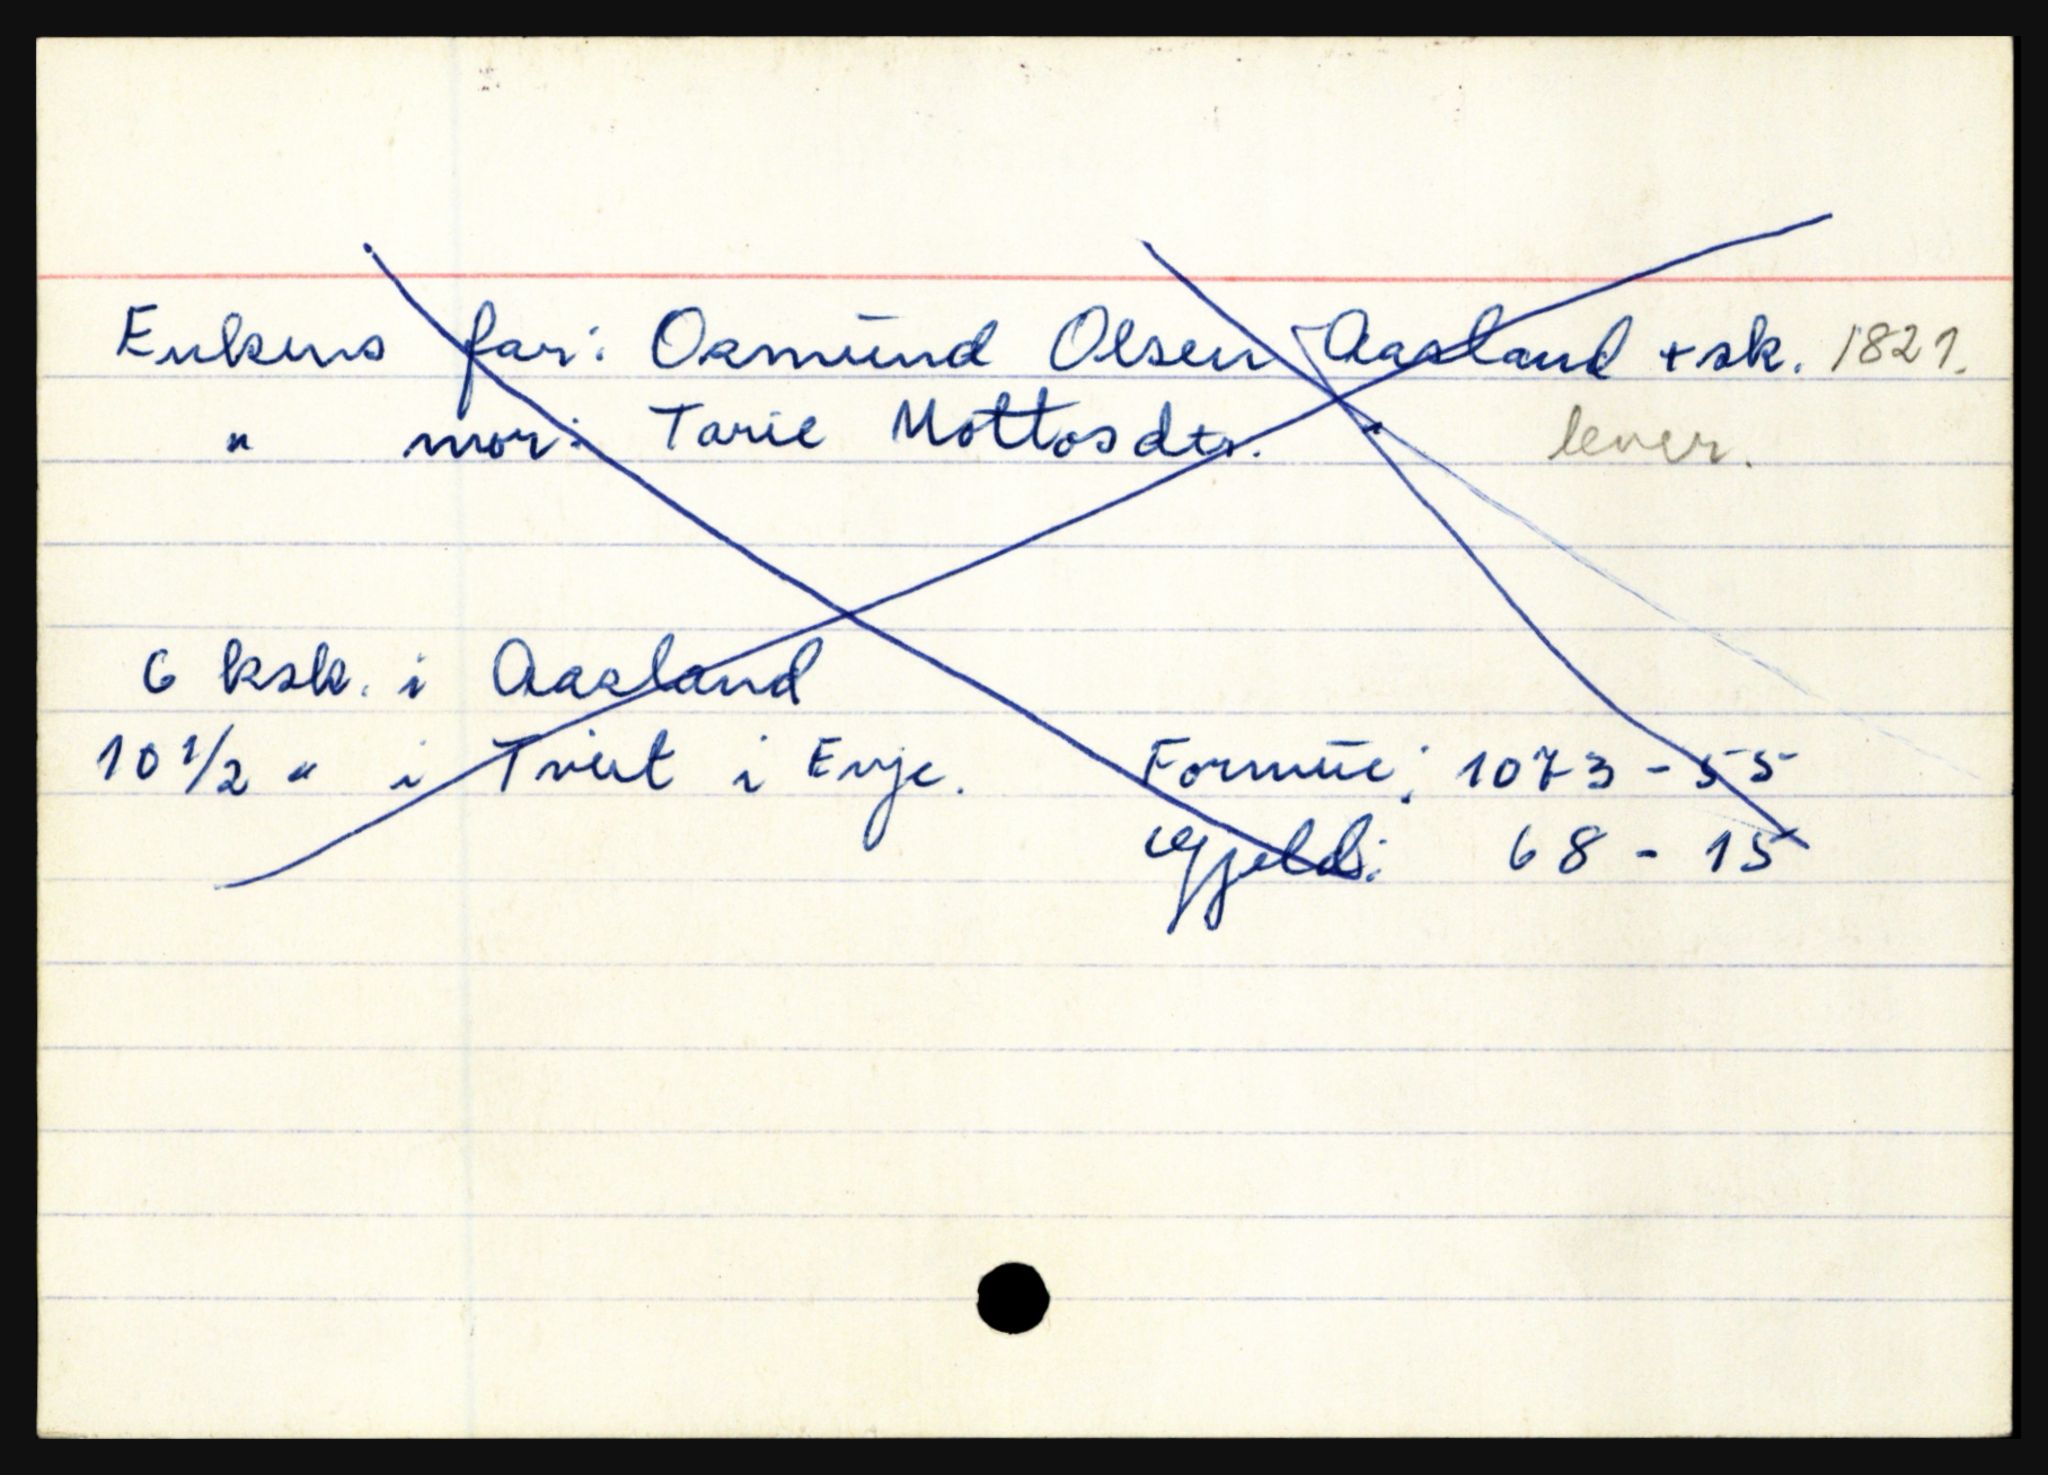 Enkens far: Osmund Olsen Aasland + sk. 1821.
" mor: Tarie Mottosdtr. lever.
6 ksk. i Aasland
10 1/2 " i Tveit i Evje. Formue: 1073 - 55
Gjeld: 68 - 15